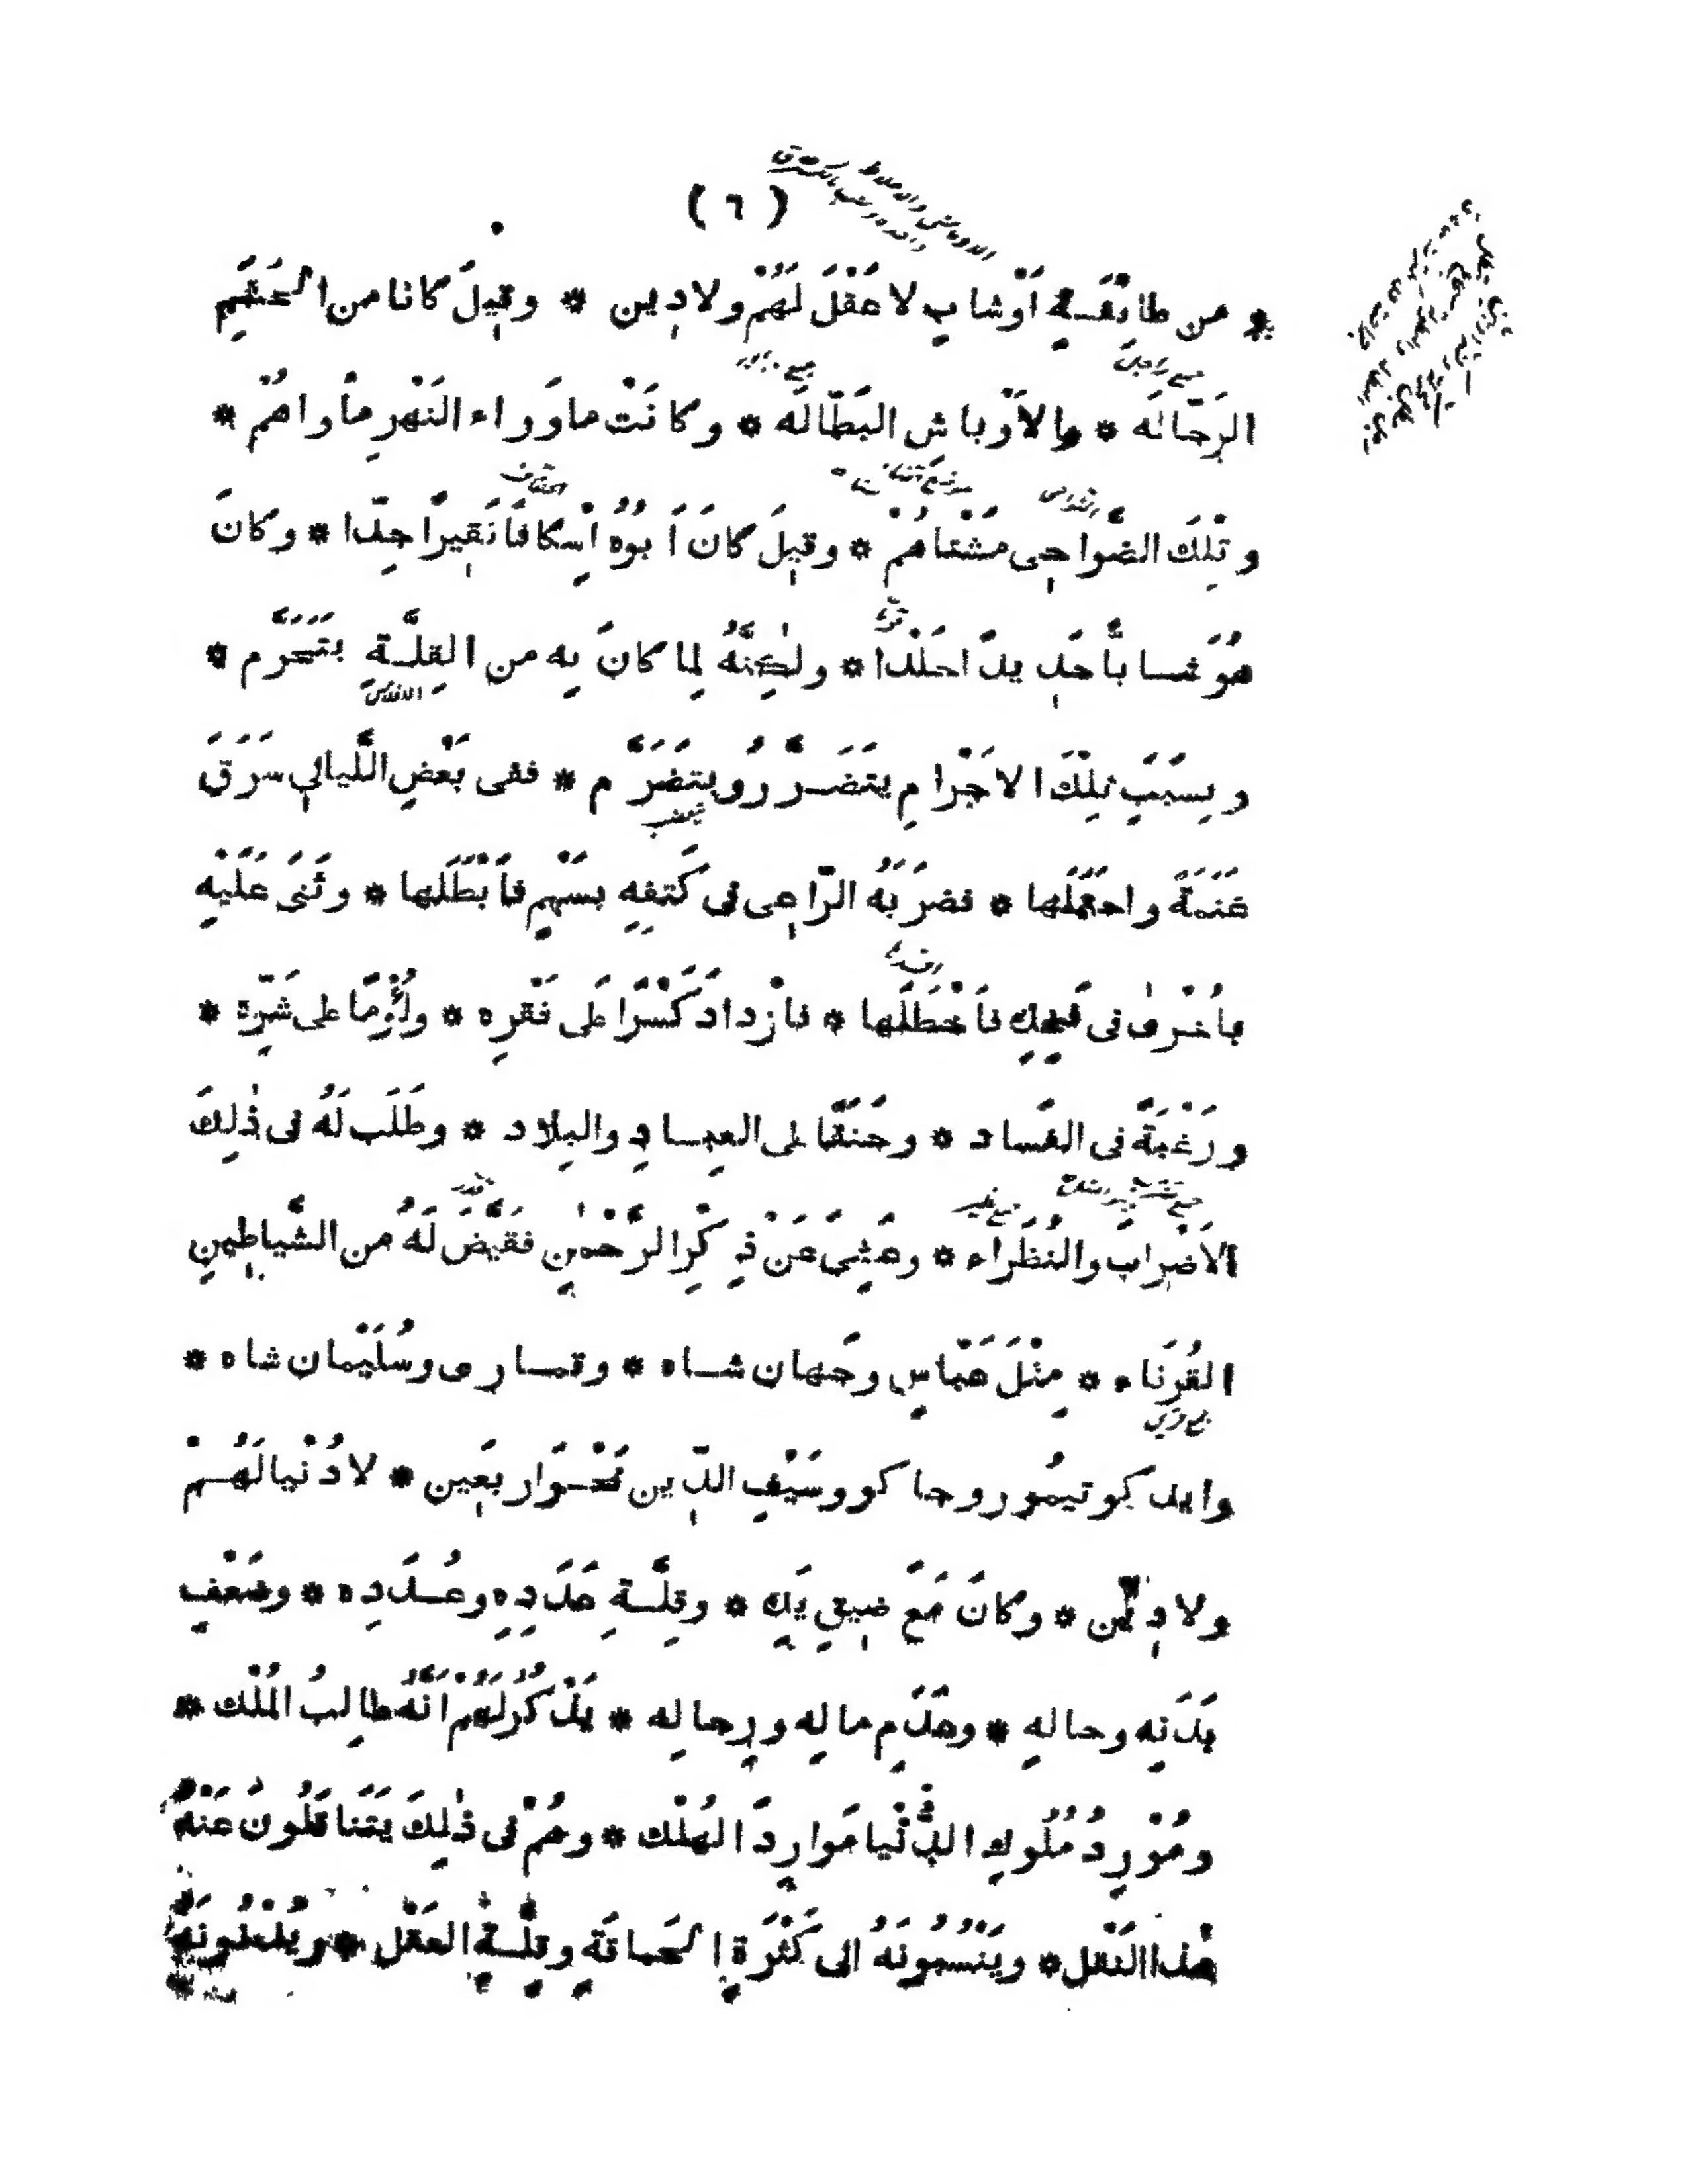 ( ٦ )
* من طائِفَةٍ اَوْشابٍ لا عَقْلَ لَهُمْ ولا دِين * وقِيلَ كانا من الحَشَمِ
الرَحّالَه * والاَوْباشِ البَطّالَه * وكانَتْ ماوَراء النَهْرِ مأْواهُم *
وتِلْكَ الضَّواحِى مَشْتاهُمْ * وقِيلَ كانَ اَبُوهُ اِسْكافًا فَقِيرًا جِدّا * وكانَ
هُوَ شابًّا حَدِيدًا جَلْدا * ولٰكِنَّهُ لِما كانَ بِه من القِلَّةِ يَتَجَرَّم *
وبِسَبَبِ تِلْكَ الاَجْرامِ يتَضَرَّرُ ويتَضَرَّم * ففى بَعْضِ اللَّيالِى سَرَقَ
غَنَمَةً واحتَمَلَها * فضرَبَهُ الرّاعِى فى كَتِفِه بسَهْمٍ فاَبْطَلَها * وثَنىَ عَلَيْهِ
باُخْرىٰ فى فَخِذِهِ فاَخْطَلَها * فازْدادَ كَسْرًا عَلى فَقْرِه * ولُؤْمًا على شَرِّه *
ورَغْبَةً فى الفَساد * وحَنَقًا على العِبادِ والبِلاد * وطَلَب لَهُ فى ذٰلِكَ
الاَضْرابَ والنُظَراء * وعَشِىَ عَنْ ذِكْرِ الرَّحْمٰنِ فقَيَّضَ لَهُ من الشَّياطِينِ
القُرَناء * مِثْلَ عَبّاسٍ وجَهان شاه * وقمارى وسُلَيْمان شاه *
وايدكو تيمُور وجاكو وسَيْفِ الدِّين نَحْوَ اربَعِين * لا دُنْيا لَهُمْ
ولا دِين * وكانَ مَعَ ضِيقِ يَدِه * وقِلَّةِ عَدَدِهِ وعُدَدِه * وضَعْفِ
بَدَنِه وحالِه * وعَدَمِ مالِه ورِجالِه * يَذْكُرُ لَهُمْ اَنَّهُ طالِبُ المُلْك *
ومُوْرِدُ مُلُوكِ الدُّنْيا مَوارِدَ الهُلْك * وهُمْ فى ذٰلِكَ يَتَناقَلُونَ عَنْهُ
هٰذا النَقْل * ويَنْسُبُونَهُ الى كَثْرَةِ الحَماقَةِ وقِلَّةِ العَقْل *